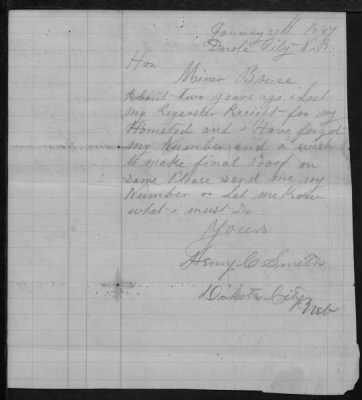 January 21st 1887
Dacota City N.B.
Hon
Miner Bruse
About two years ago i Lost
my Regester Receipt for my
Homsted and i Have forgot
my Number and i wish
to make final Proof on
same Please send me my
Number or Let me Know
what i must Do
Yours
Henry C Smith
Dakota City
Neb